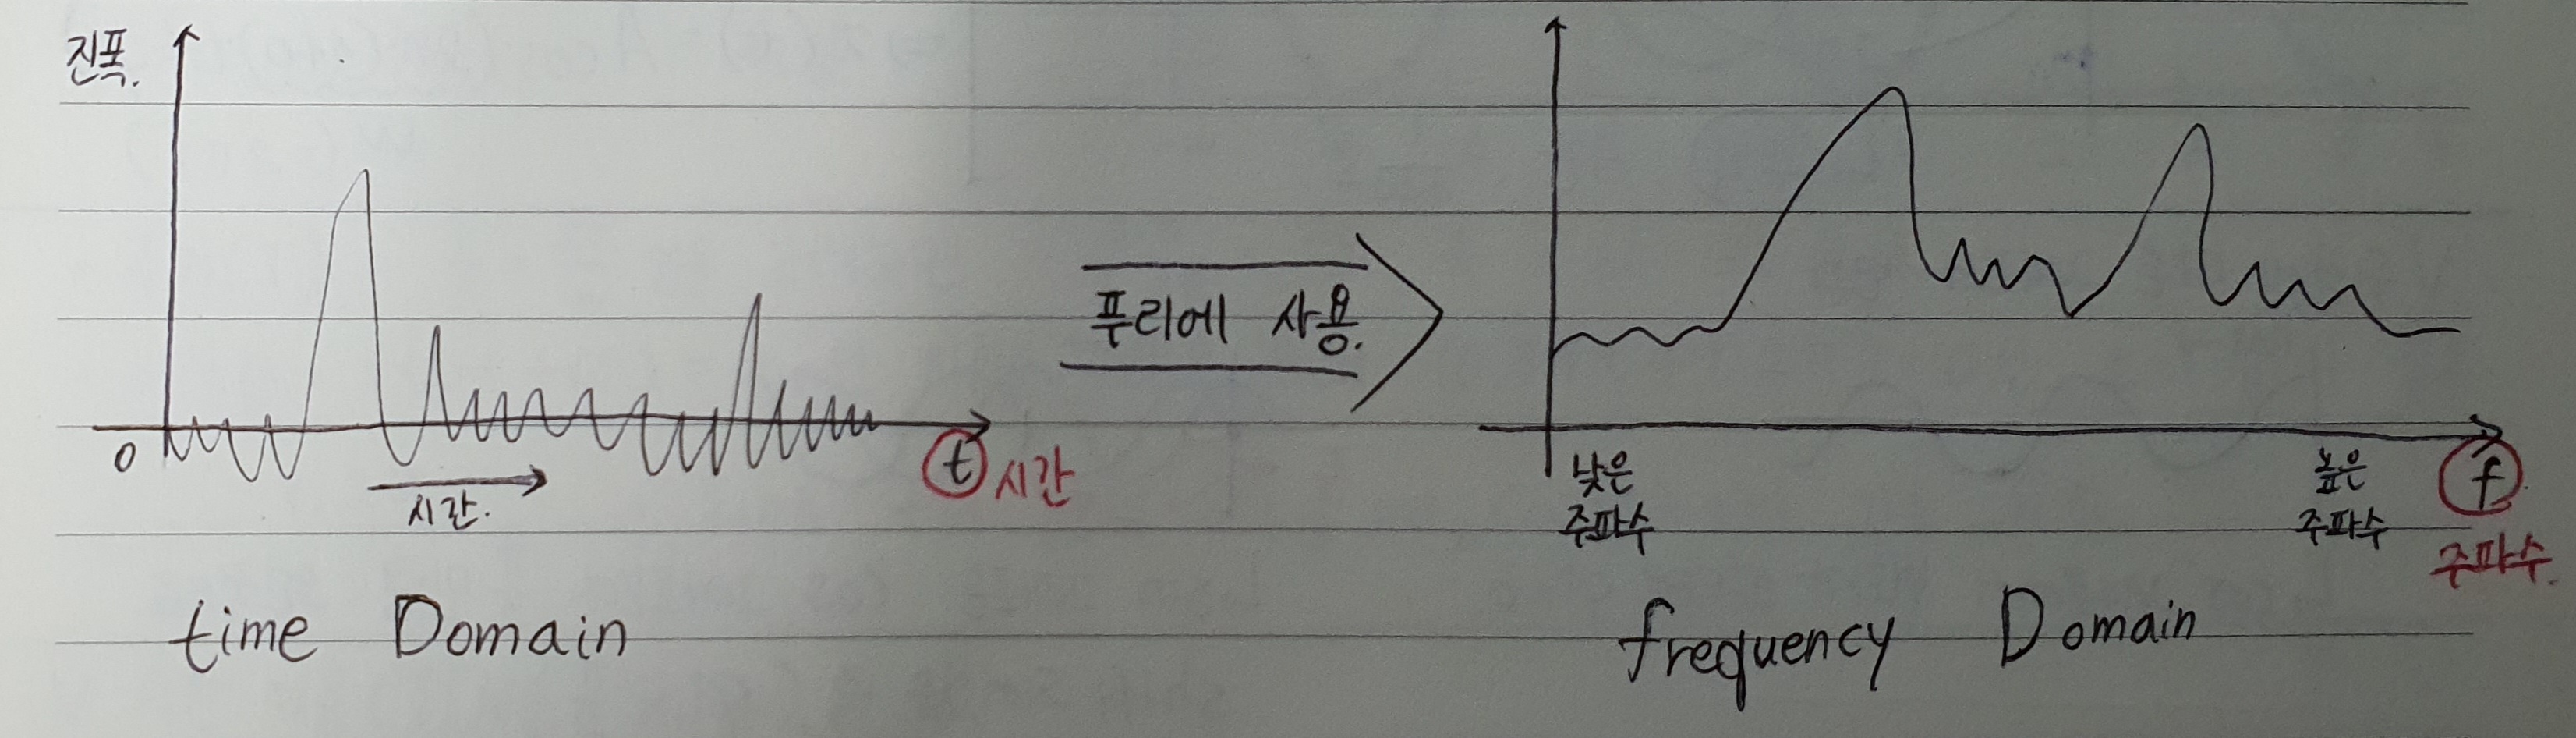 진폭.
0
시간.
t 시간
time Domain
푸리에 사용.
낮은
주파수
높은
주파수
f
주파수.
frequency Domain